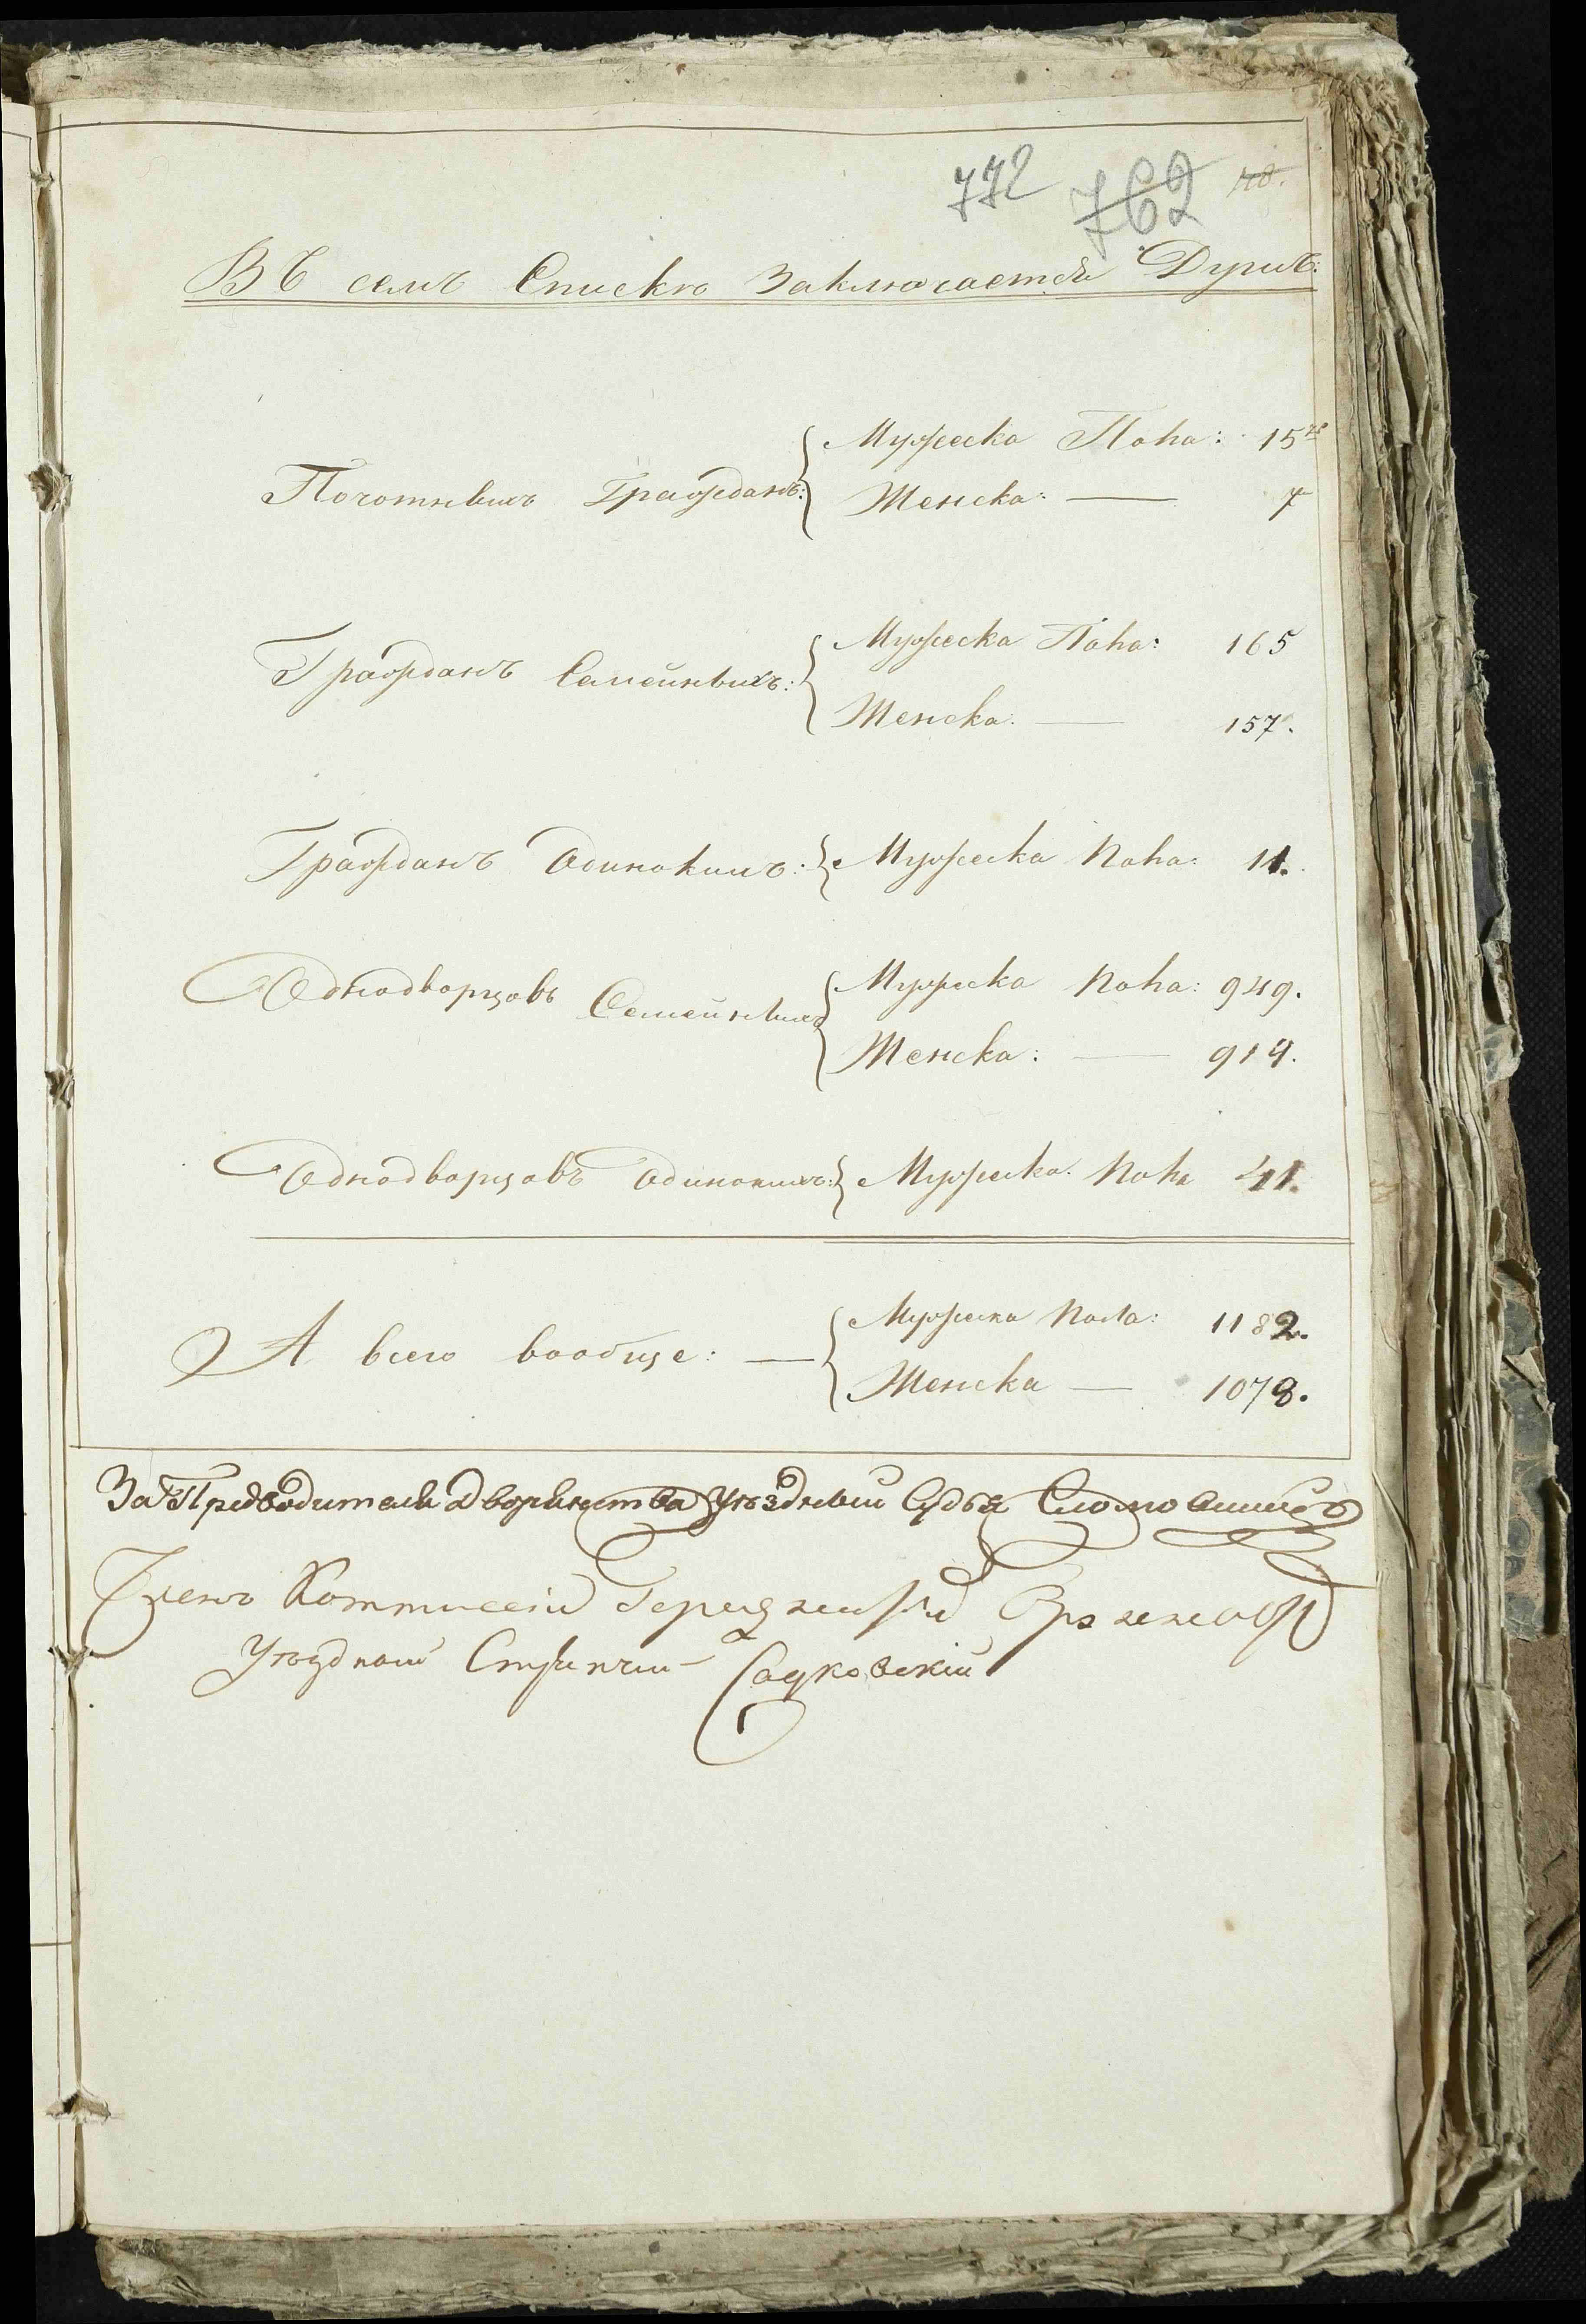 772 762
Въ семъ Спискѣ Заключается Душъ:
Мужеска Пола: 15
Почотныхъ Гражданъ:
Женска: — 7
Мужеска Пола: 165
Гражданъ Семейныхъ:
Женска: — 157.
Гражданъ Одинокихъ: Мужеска Пола: 11.
Мужеска Пола: 949.
Однодворцовъ Семейныхъ
Женска: — 914.
Однодворцовъ Одинокихъ: Мужеска Пола 41.
Мужеска Пола: 1182.
А всего вообще: —
Женска — 1078.
За Предводителя Дворянства Уѣздный Судья
Членъ Коммисеіи
Уѣздный Стряпчій Садковскій